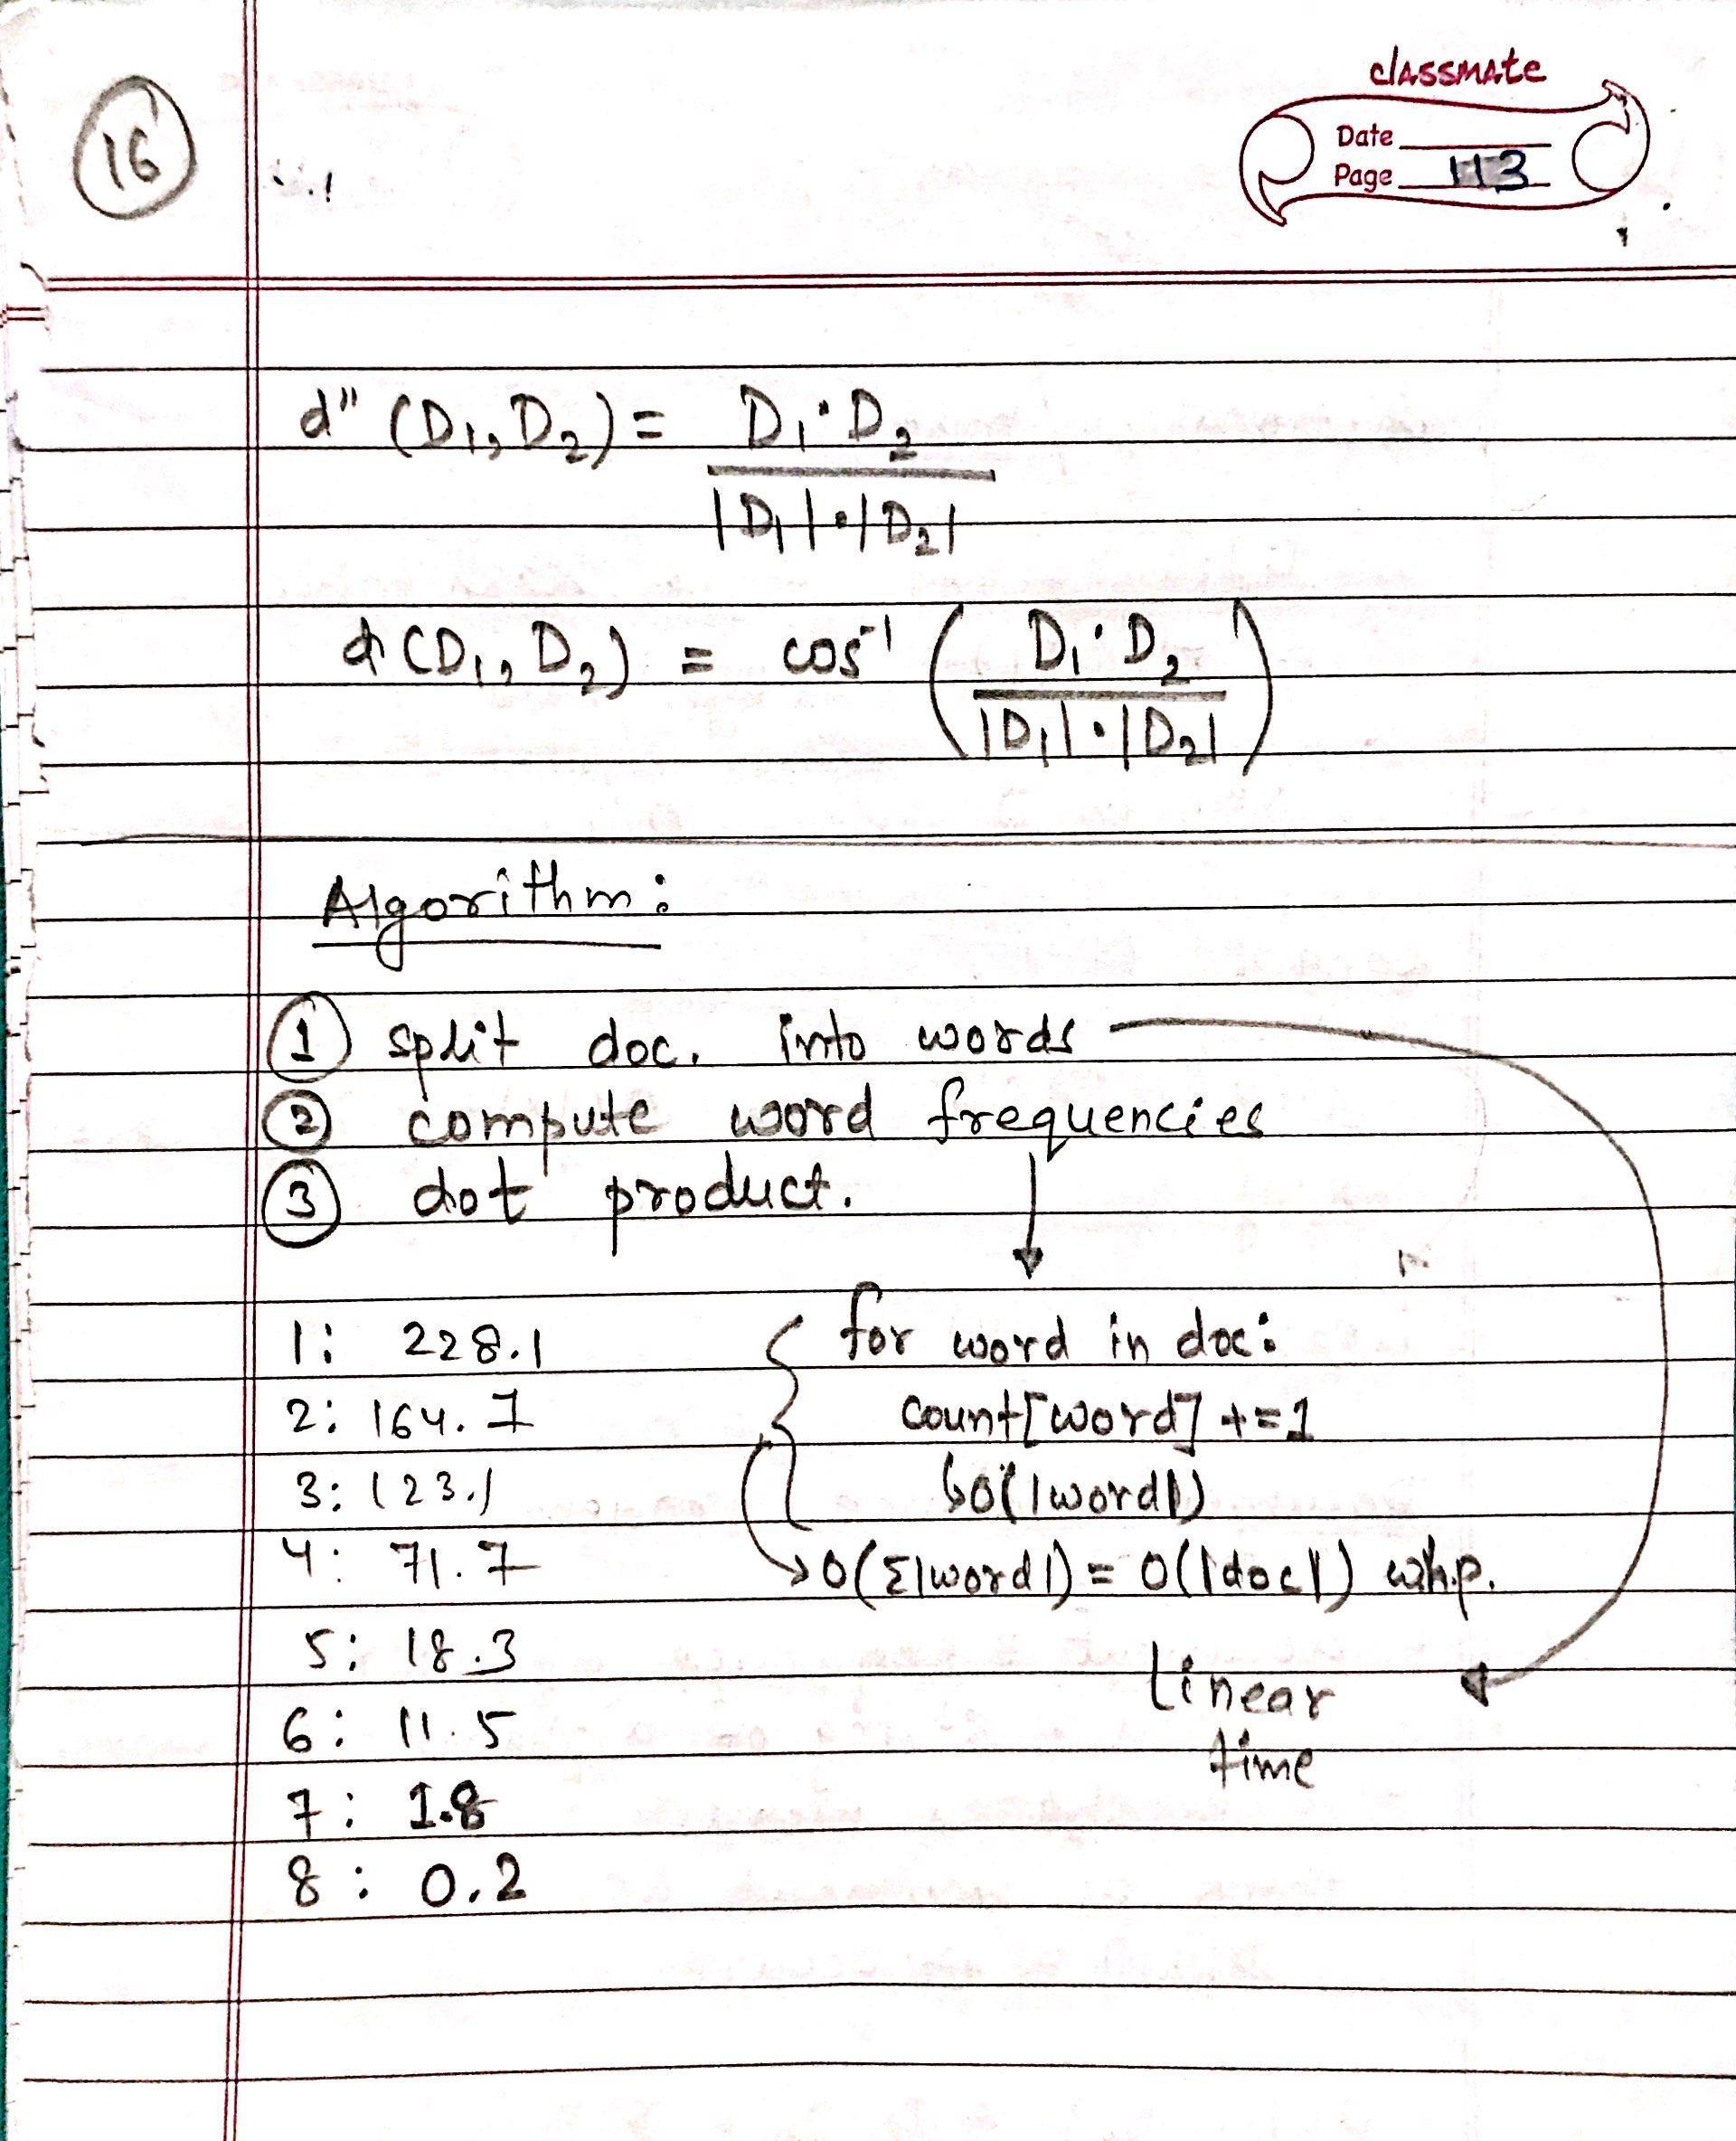 classmate
Date
Page 113
16
d" (D₁, D₂) = D₁·D₂ / |D₁|·|D₂|
d (D₁, D₂) = cos⁻¹ ( D₁·D₂ / |D₁|·|D₂| )
Algorithm:
① split doc. into words
② compute word frequencies
③ dot product.
1: 228.1
2: 164.7
3: 123.1
4: 71.7
5: 18.3
6: 11.5
7: 1.8
8: 0.2
for word in doc:
count[word] += 1
↳O(|word|)
→O(Σ|word|) = O(|doc|) w.h.p.
Linear
time